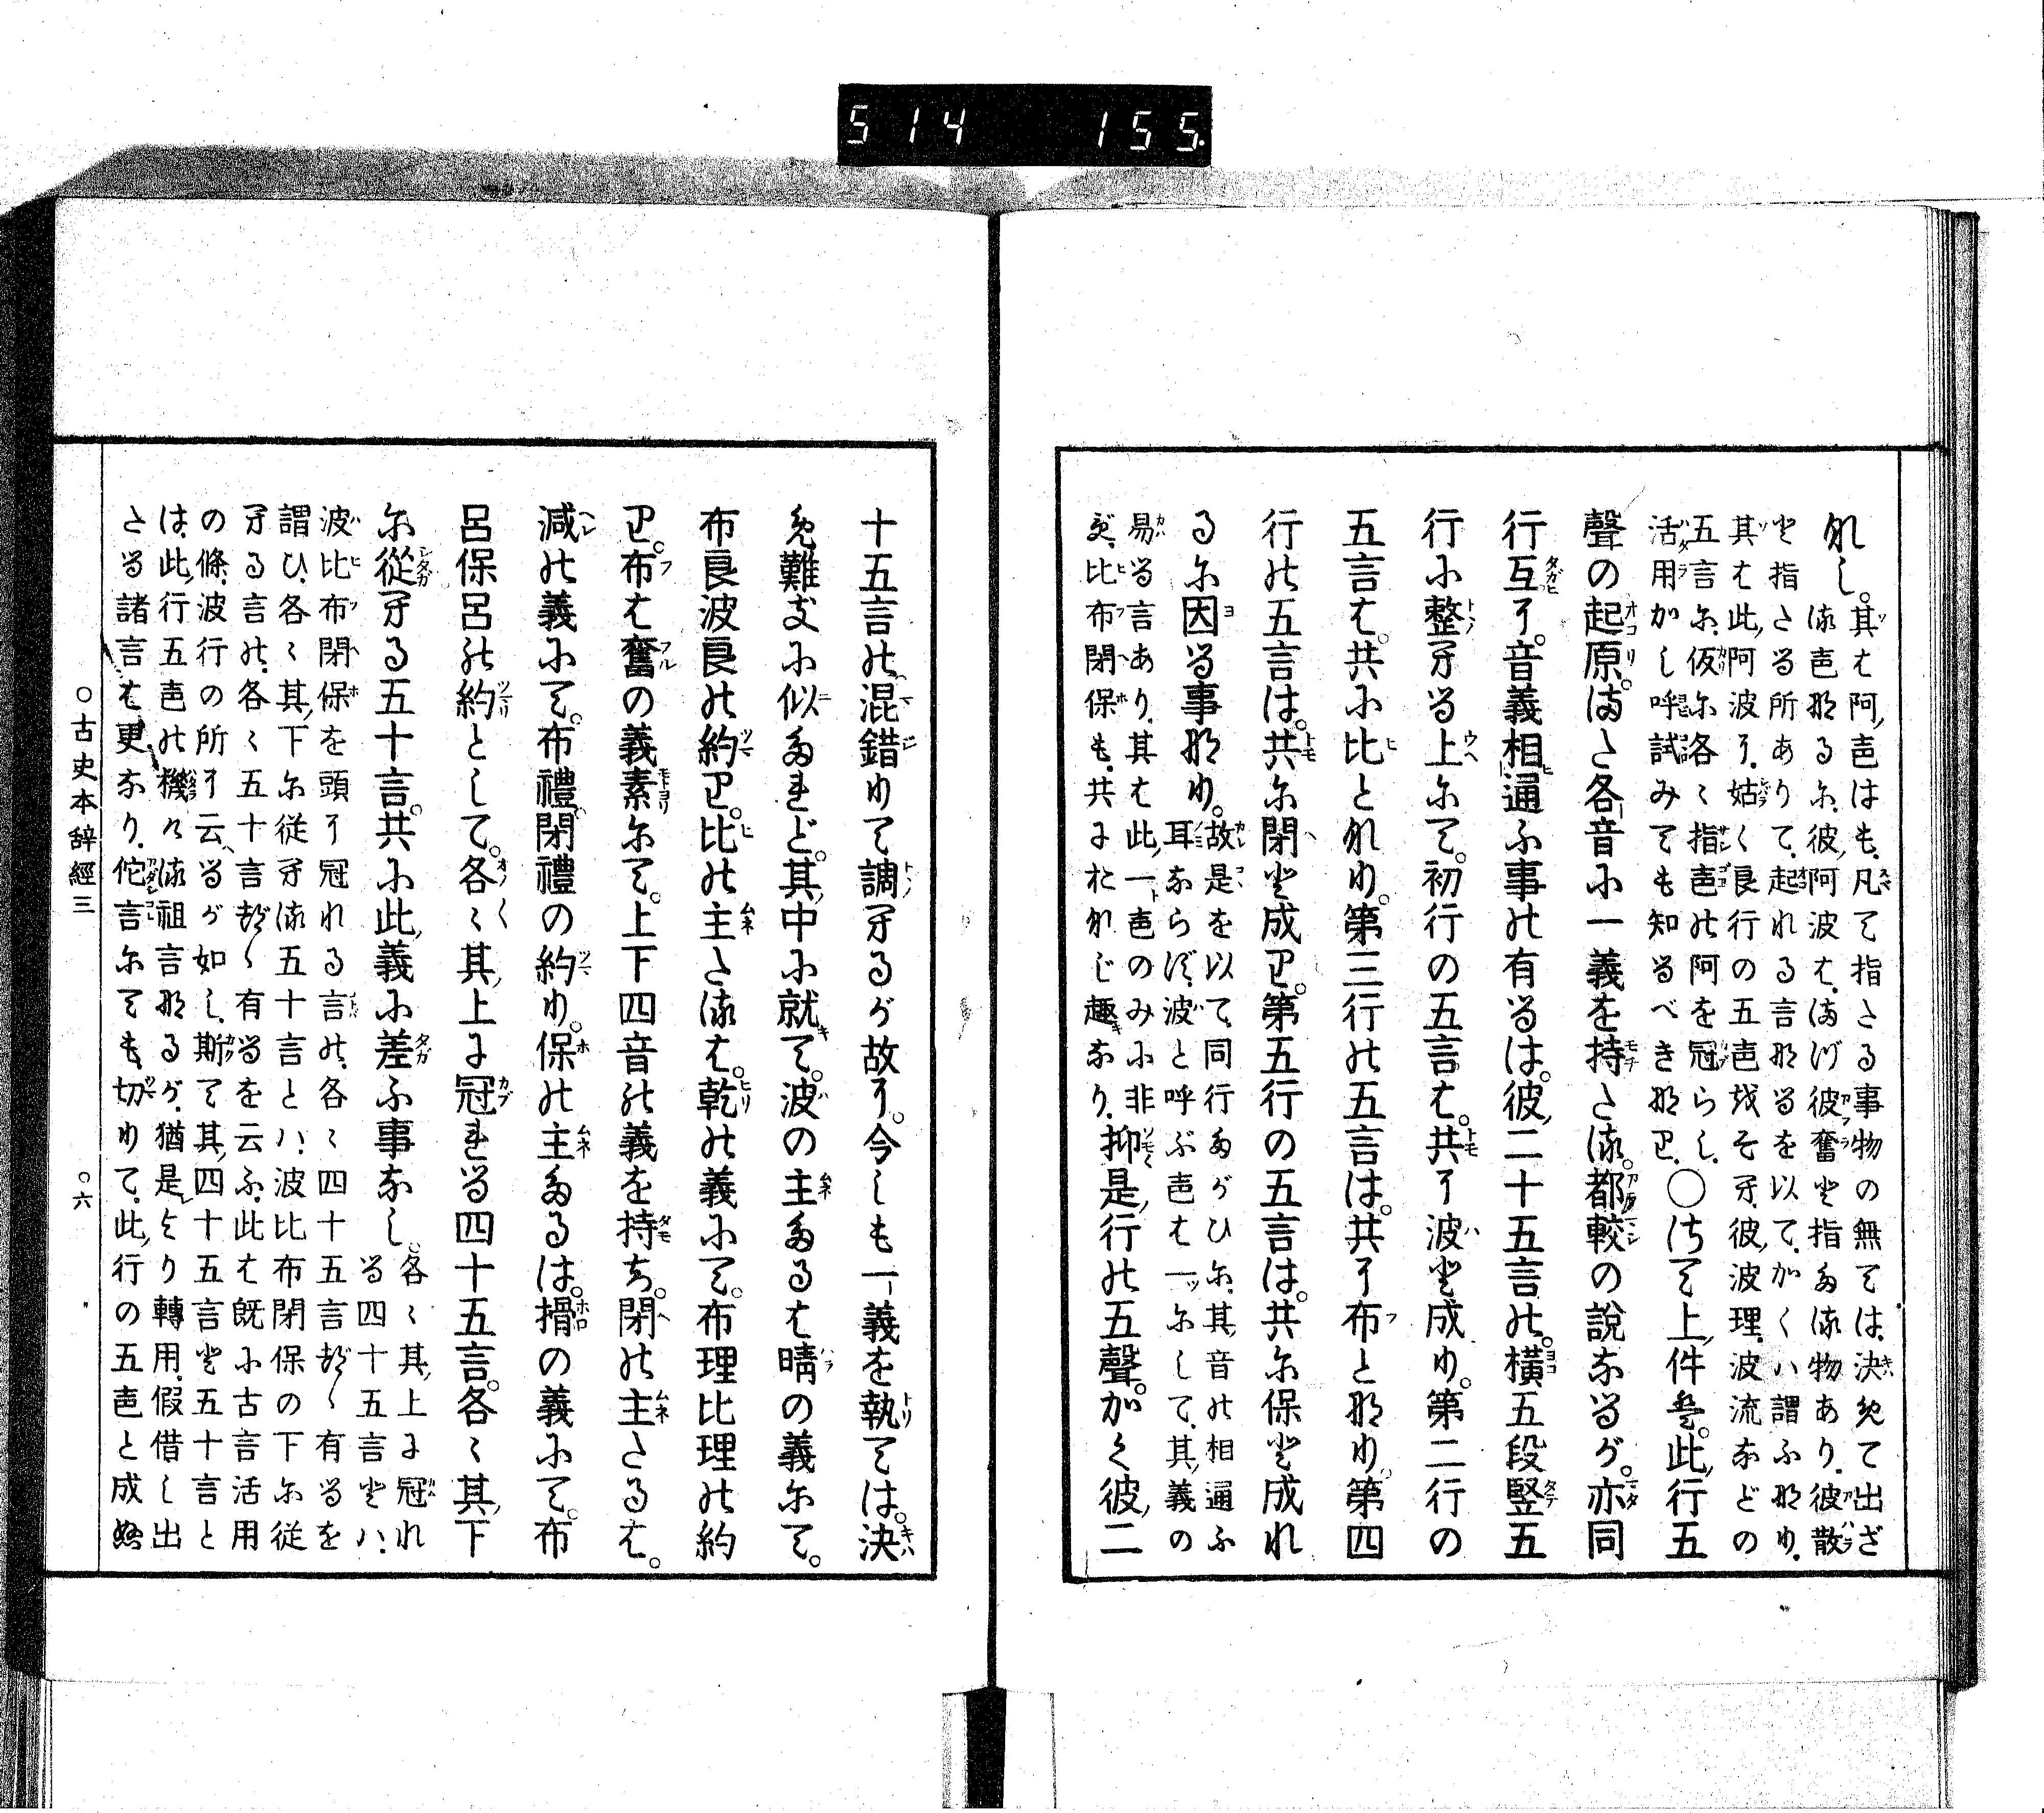 514 155.
れし。其は阿声はも、凡て指さる事物の無ては、決めて出ざ
る声なるに、彼阿波は、まづ彼奮と指たる物あり、彼散
と指さる所ありて、起れる言なるを以て、かくハ謂ふなり、
其は此阿波に、姑く良行の五声をそへ、彼波理、波流などの
五言に、仮に各々指声の阿を冠らし、
活用かし呼試みても知るべきなり、〇さて上件で、此行五
聲の起原、また各音に一義を持たる、都較の説なるが、亦同
行互に、音義相通ふ事の有るは、彼二十五言の、横五段竪五
行に整へる上にて、初行の五言は、共に波と成り、第二行の
五言は、共に比となり、第三行の五言は、共に布となり、第四
行の五言は、共に閉と成り、第五行の五言は、共に保と成れ
るに因る事なり、故是を以て、同行たがひに、其音の相通ふ
耳ならず、波と呼ぶ声は一ッにして、其義の
易る言あり、其は此一声のみに非
ず、比布閉保も、共におなじ趣なり、抑是行の五聲、かく彼二
十五言の、混錯りて調へるが故に、今しも一義を執ては、決
め難きに似たれど、其中に就て、波の主たるは晴の義にて、
布良波良の約り、比の主たるは、乾の義にて、布理比理の約
り、布は奮の義素にて、上下四音の義を持ち、閉の主たるは、
減の義にて、布禮閉禮の約り、保の主たるは、搰の義にて、布
呂保呂の約として、各々其上に冠れる四十五言、各々其下
に從へる五十言、共に此義に差ふ事なし、各々其上に冠れ
る四十五言とハ、
波比布閉保を頭に冠れる言の、各々四十五言づゝ有るを
謂ひ、各々其下に従へる五十言とハ、波比布閉保の下に従
へる言の、各々五十言づゝ有るを云ふ、此は既に古言活用
の條、波行の所に云るが如し、斯て其四十五言と五十言と
は、此行五声の機の祖言なるが、猶是より轉用、假借し出
さる諸言は更なり、佗言にても、切りて、此行の五声と成ぬ
○古史本辞經三 ○六